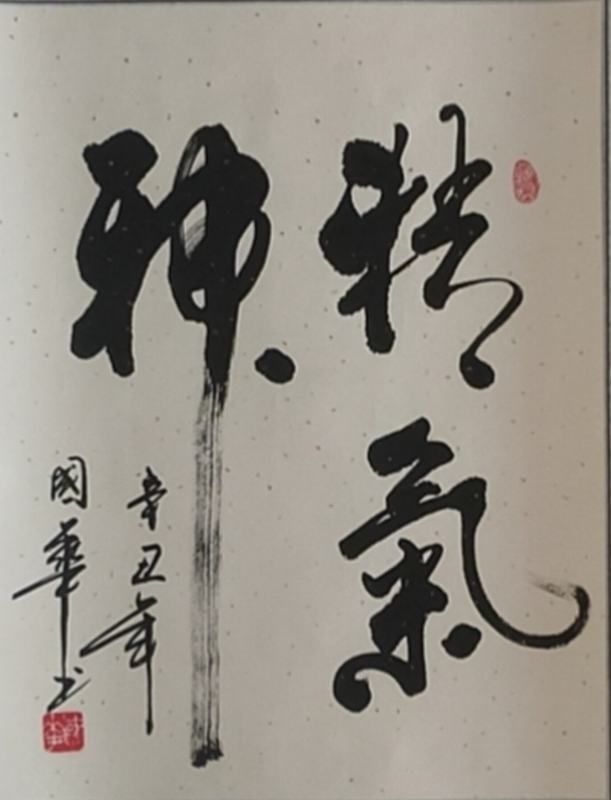 精氣
神
辛丑年
國華书